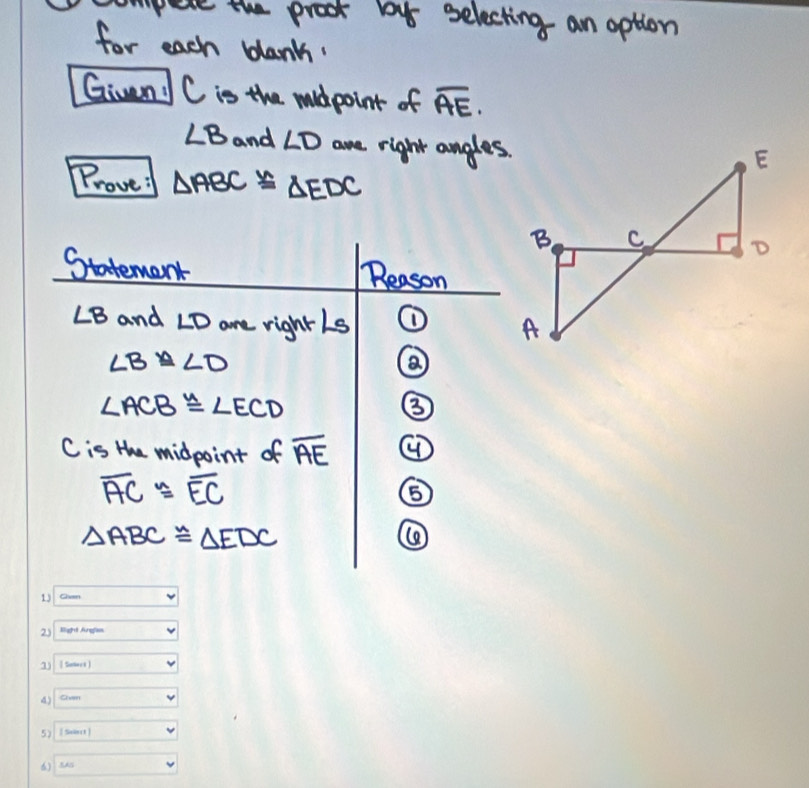 ① Complete the proof by selecting an option
for each blank.
Given: C is the midpoint of AE.
∠B and ∠D are right angles.
Prove: △ABC ≅ △EDC
E
B C D
A
Statement Reason
∠B and ∠D are right ∠s ①
∠B ≅ ∠D ②
∠ACB ≅ ∠ECD ③
C is the midpoint of AE ④
AC ≅ EC ⑤
△ABC ≅ △EDC ⑥
1.) Given
2.) Right Angles
3.) [ Select ]
4.) Given
5.) [ Select ]
6.)